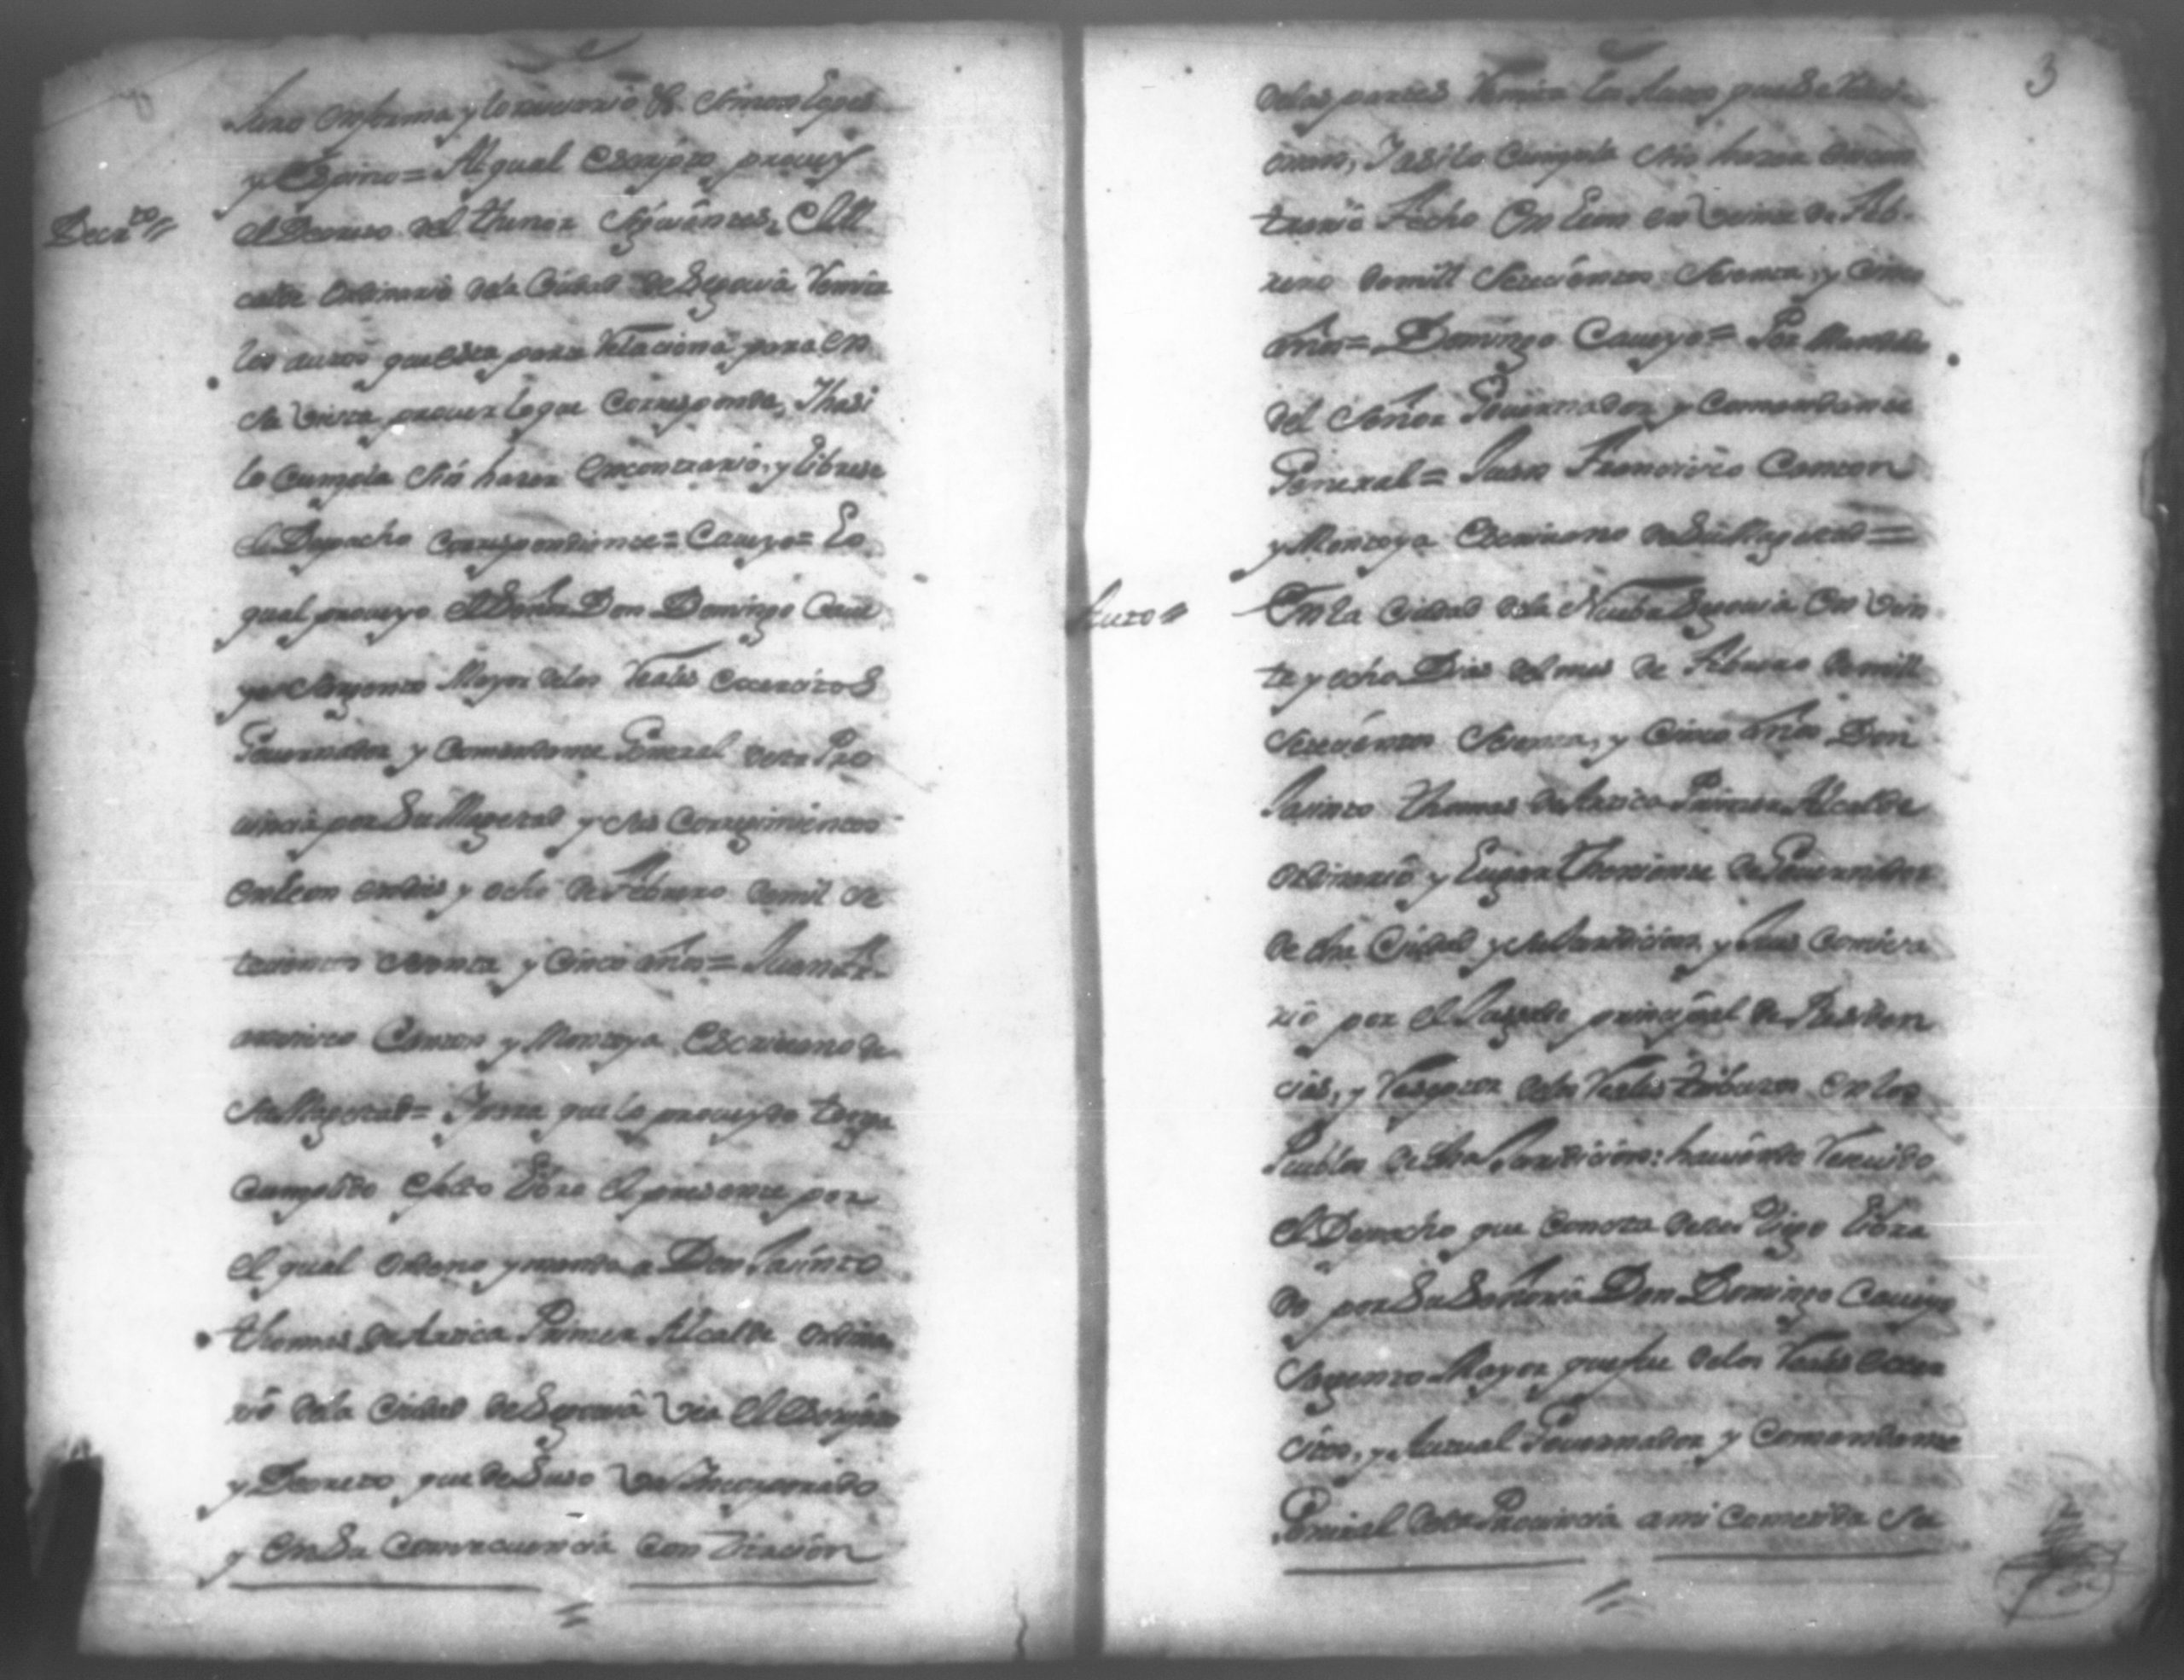 Juro en forma y lo necesario &c. Simon Lopes
y Espino = Al qual escripto provey
Decrto //
el Decreto del thenor siguientes, El Al
calde ordinario dela Ciudad de Segovia remita
los autos que esta parte relaciona para en
su vista proveer lo que corresponda, Y hasi
lo cumpla sin hazer en contrario, y librese
el Despacho correspondiente = Caveyo = Lo
qual proveyo el Señor Don Domingo Cave
yo Sargento Mayor delos Reales Exercitos
Governador y Comandante General desta Pro
vincia por Su Magestad y sus Corregimientos
en Leon en dies y ocho de Febrero de mil se
tecientos secenta y cinco años = Juan Fr
ancisco Canton y Montoya Escrivano de
Su Magestad = Y para que lo proveydo tenga
cumplido efecto libro el presente por
el qual ordeno y mando a Don Jasinto
thomas de Arrica Primer Alcalde ordina
rio dela Ciudad de Segovia vea el Escripto
y Decreto que de Suso va Yncorporado
y en Su Consecuencia con Citacion
3
delas partes remita los Autos que Se
Y asi lo Cumpla Sin hazer en con
trario Fecho en Leon en veinte de Feb
rero de mill Setecientos Secenta, y Cinco
años = Domingo Caveyo = Por Mandado
del Señor Governador y Comandante
General = Juan Francisco Canton
y Montoya Escrivano de Su Magestad =
Auto //
En la Ciudad dela Nueba Segovia en vein
te y ocho Dias del mes de Febrero de mill
Setecientos Secenta, y Cinco años Don
Jasinto thomas de Arrica Primer Alcalde
ordinario y Lugar theniente de Governador
de dha Ciudad y su Jurisdicion y Jues Comisa
rio por el Jusgado principal de
y delos Reales tributos en los
Pueblos de dha Jurisdicion: haviendo Recivido
el Despacho que Consta desta libra
do por Su Señoria Don Domingo Caveyo
Sargento Mayor que fue delos Reales Exer
citos, y Actual Governador y Comandante
General desta Provincia a mi Cometida Su